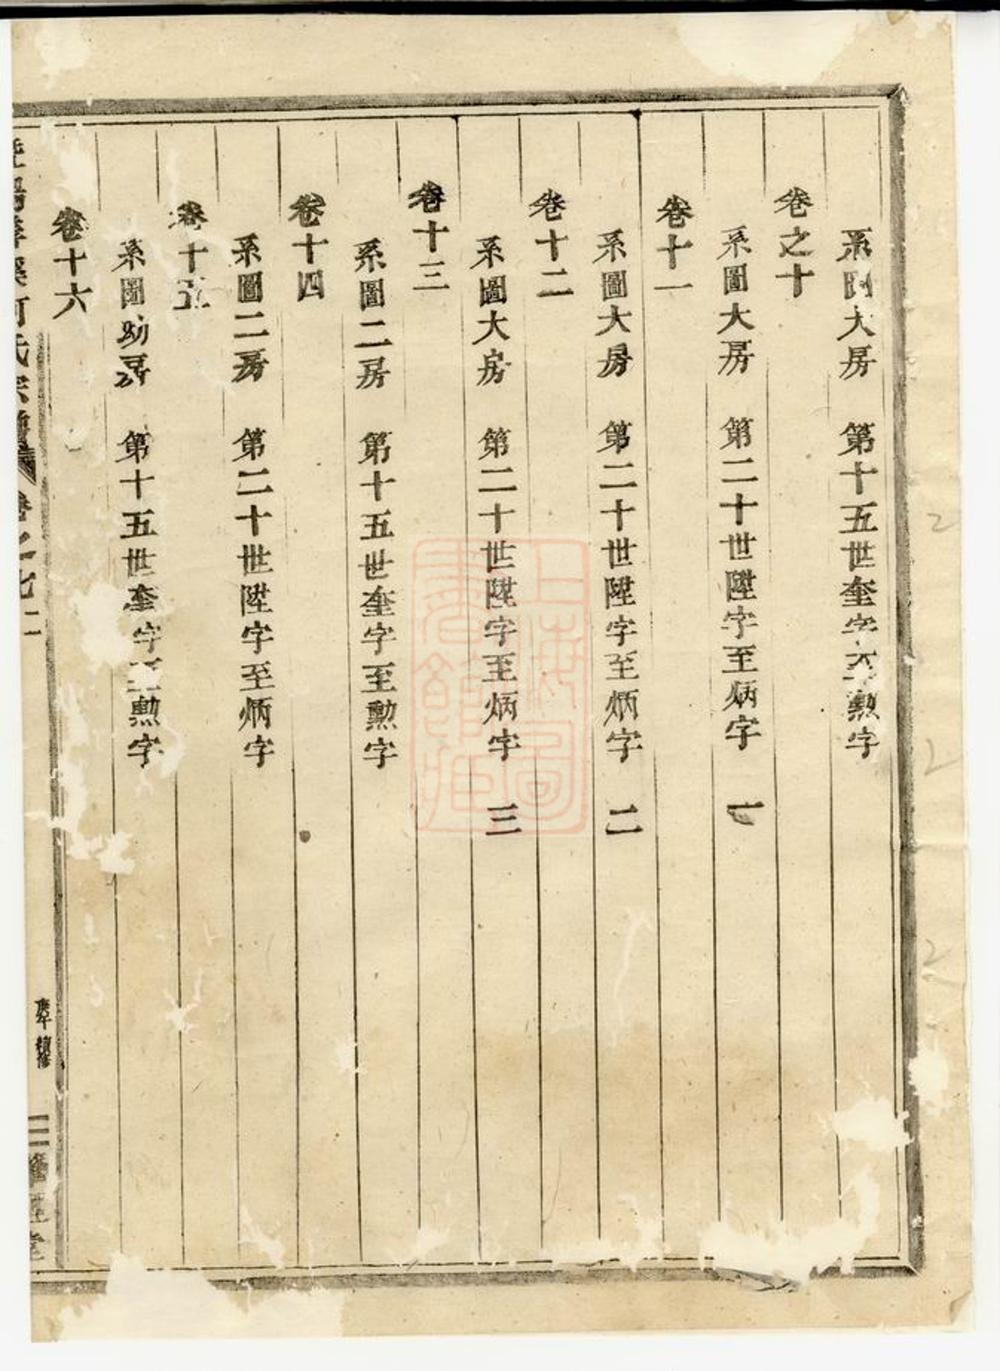 系圖大房 第十五世奎字至勲字
卷之十
系圖大房 第二十世陞字至炳字 一
卷十一
系圖大房 第二十世陞字至炳字 二
卷十二
系圖大房 第二十世陞字至炳字 三
卷十三
系圖二房 第十五世奎字至勲字
卷十四
系圖二房 第二十世陞字至炳字
卷十五
系圖房 第十五世奎字至勲字
卷十六
氏宗譜 卷之
續修
堂
上海圖書館藏